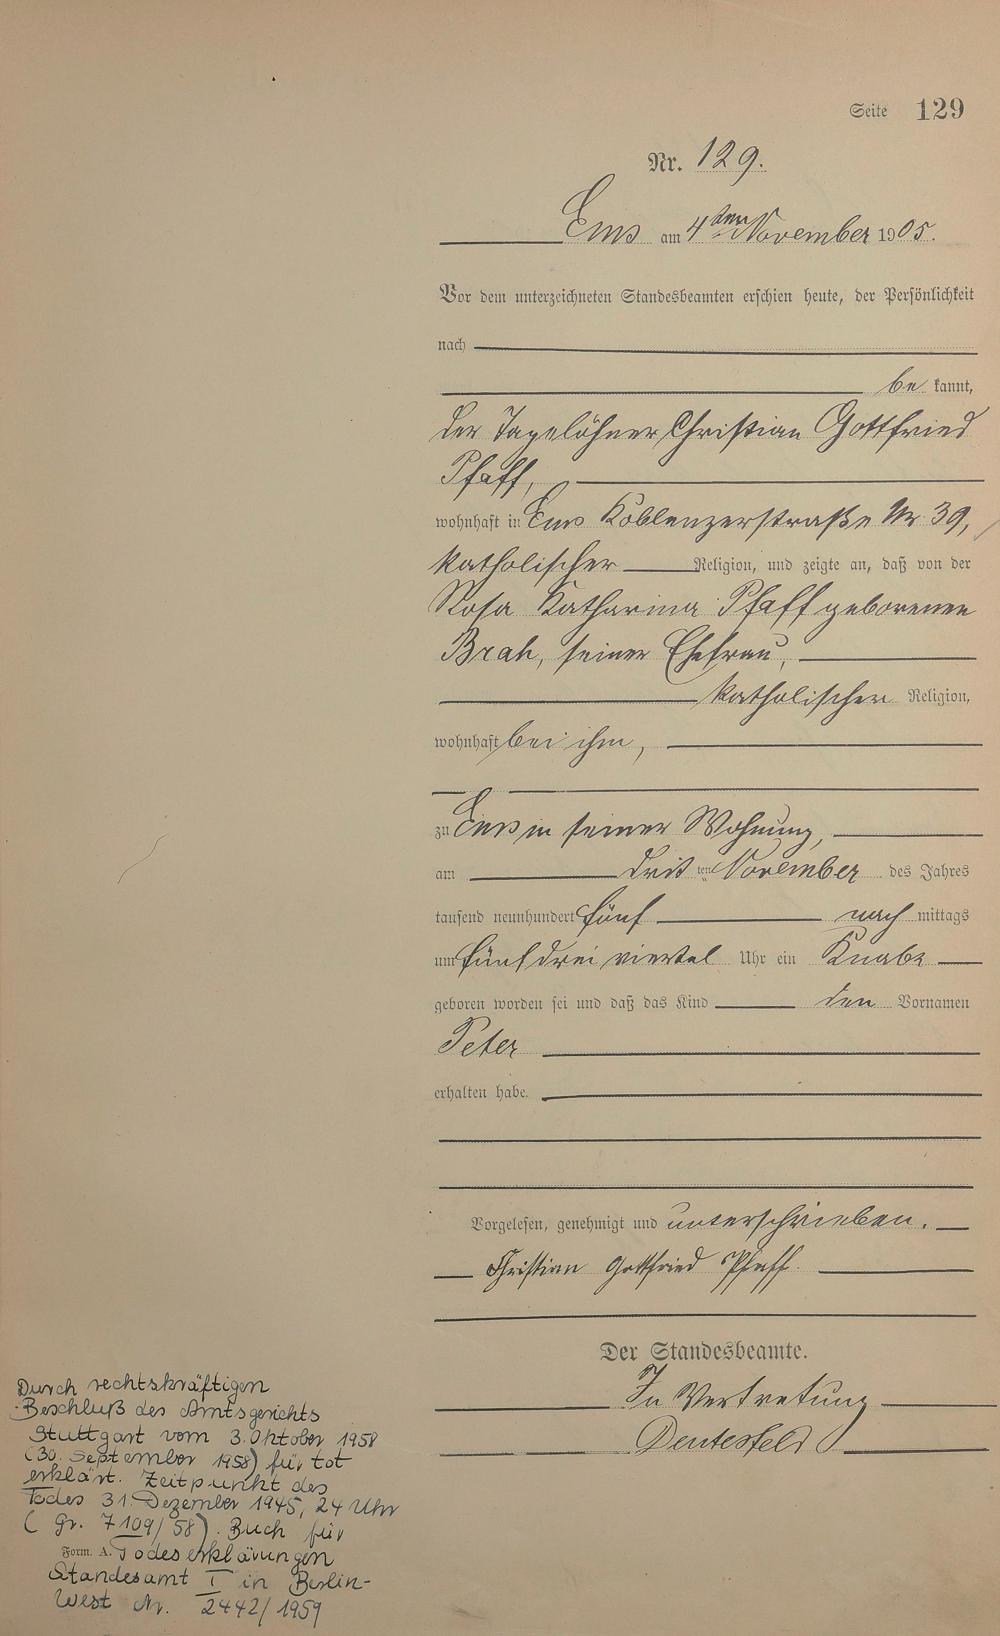 Seite 129
Nr. 129.
Ems am 4ten November 1905.
Vor dem unterzeichneten Standesbeamten erschien heute, der Persönlichkeit
nach
be kannt,
der Tagelöhner Christian Gottfried
Pfaff,
wohnhaft in Ems Koblenzerstraße Nr 39,
katholischer Religion, und zeigte an, daß von der
Rosa Katharina Pfaff geborenen
Brah, seiner Ehefrau,
katholischer Religion,
wohnhaft bei ihm,
zu Ems in seiner Wohnung,
am dritten November des Jahres
tausend neunhundert fünf nach mittags
um fünf drei viertel Uhr ein Knabe
geboren worden sei und daß das Kind den Vornamen
Peter
erhalten habe.
Vorgelesen, genehmigt und unterschrieben.
Christian Gottfried Pfaff.
Der Standesbeamte.
In Vertretung
Durch rechtskräftigen
Beschluß des Amtsgerichts
Stuttgart vom 3. Oktober 1958
(30. September 1958) für tot
erklärt. Zeitpunkt des
Todes 31. Dezember 1945, 24 Uhr
( Gr. 7109/58). Buch für
Form. A. Todeserklärungen
Standesamt I in Berlin-
West Nr. 2442/1959